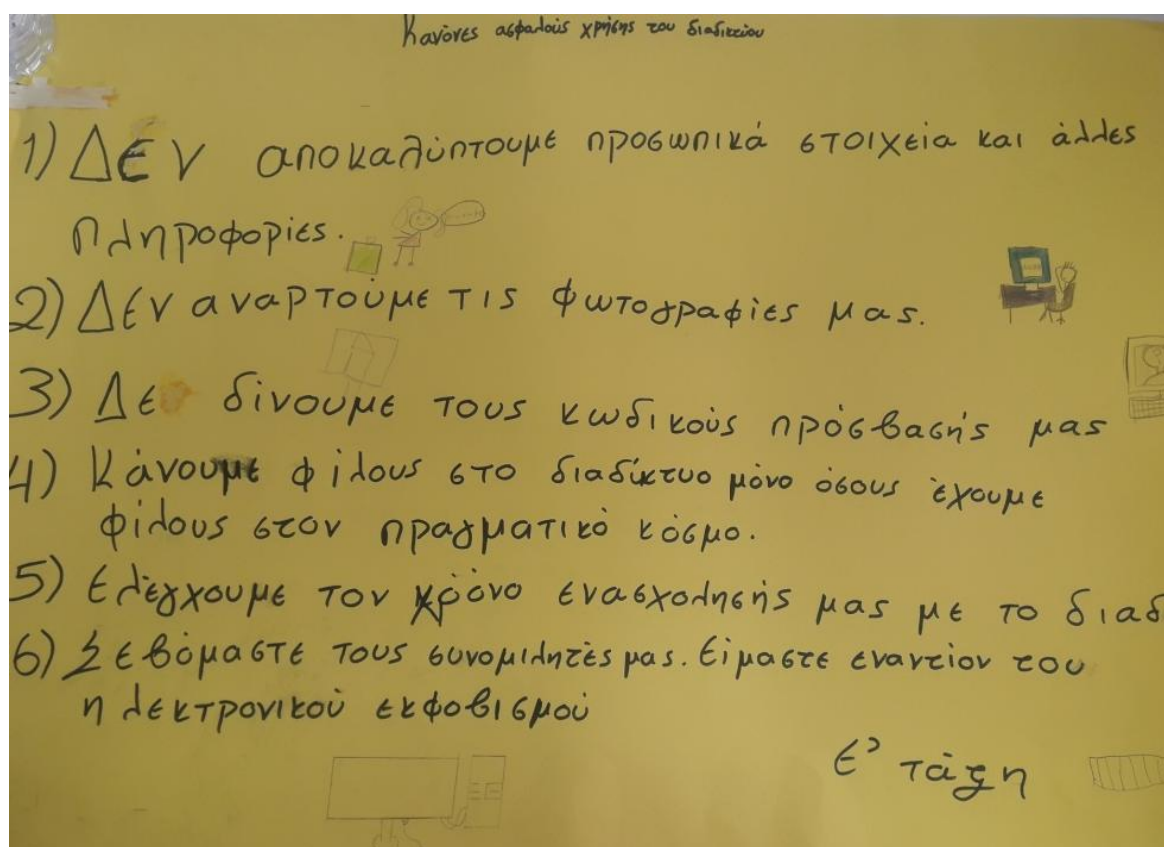 Κανόνες ασφαλούς χρήσης του διαδικτίου
1) ΔΕΝ αποκαλύπτουμε προσωπικά στοιχεία και άλλες
πληροφορίες.
2) ΔΕΝ αναρτούμε τις φωτογραφίες μας.
3) Δε δίνουμε τους κωδικούς πρόσβασής μας
4) Κάνουμε φίλους στο διαδίκτυο μόνο όσους έχουμε
φίλους στον πραγματικό κόσμο.
5) Ελέγχουμε τον χρόνο ενασχολησής μας με το διαδ
6) Σεβόμαστε τους συνομιλητές μας. Είμαστε εναντίον του
ηλεκτρονικού εκφοβισμού
Ε' τάξη